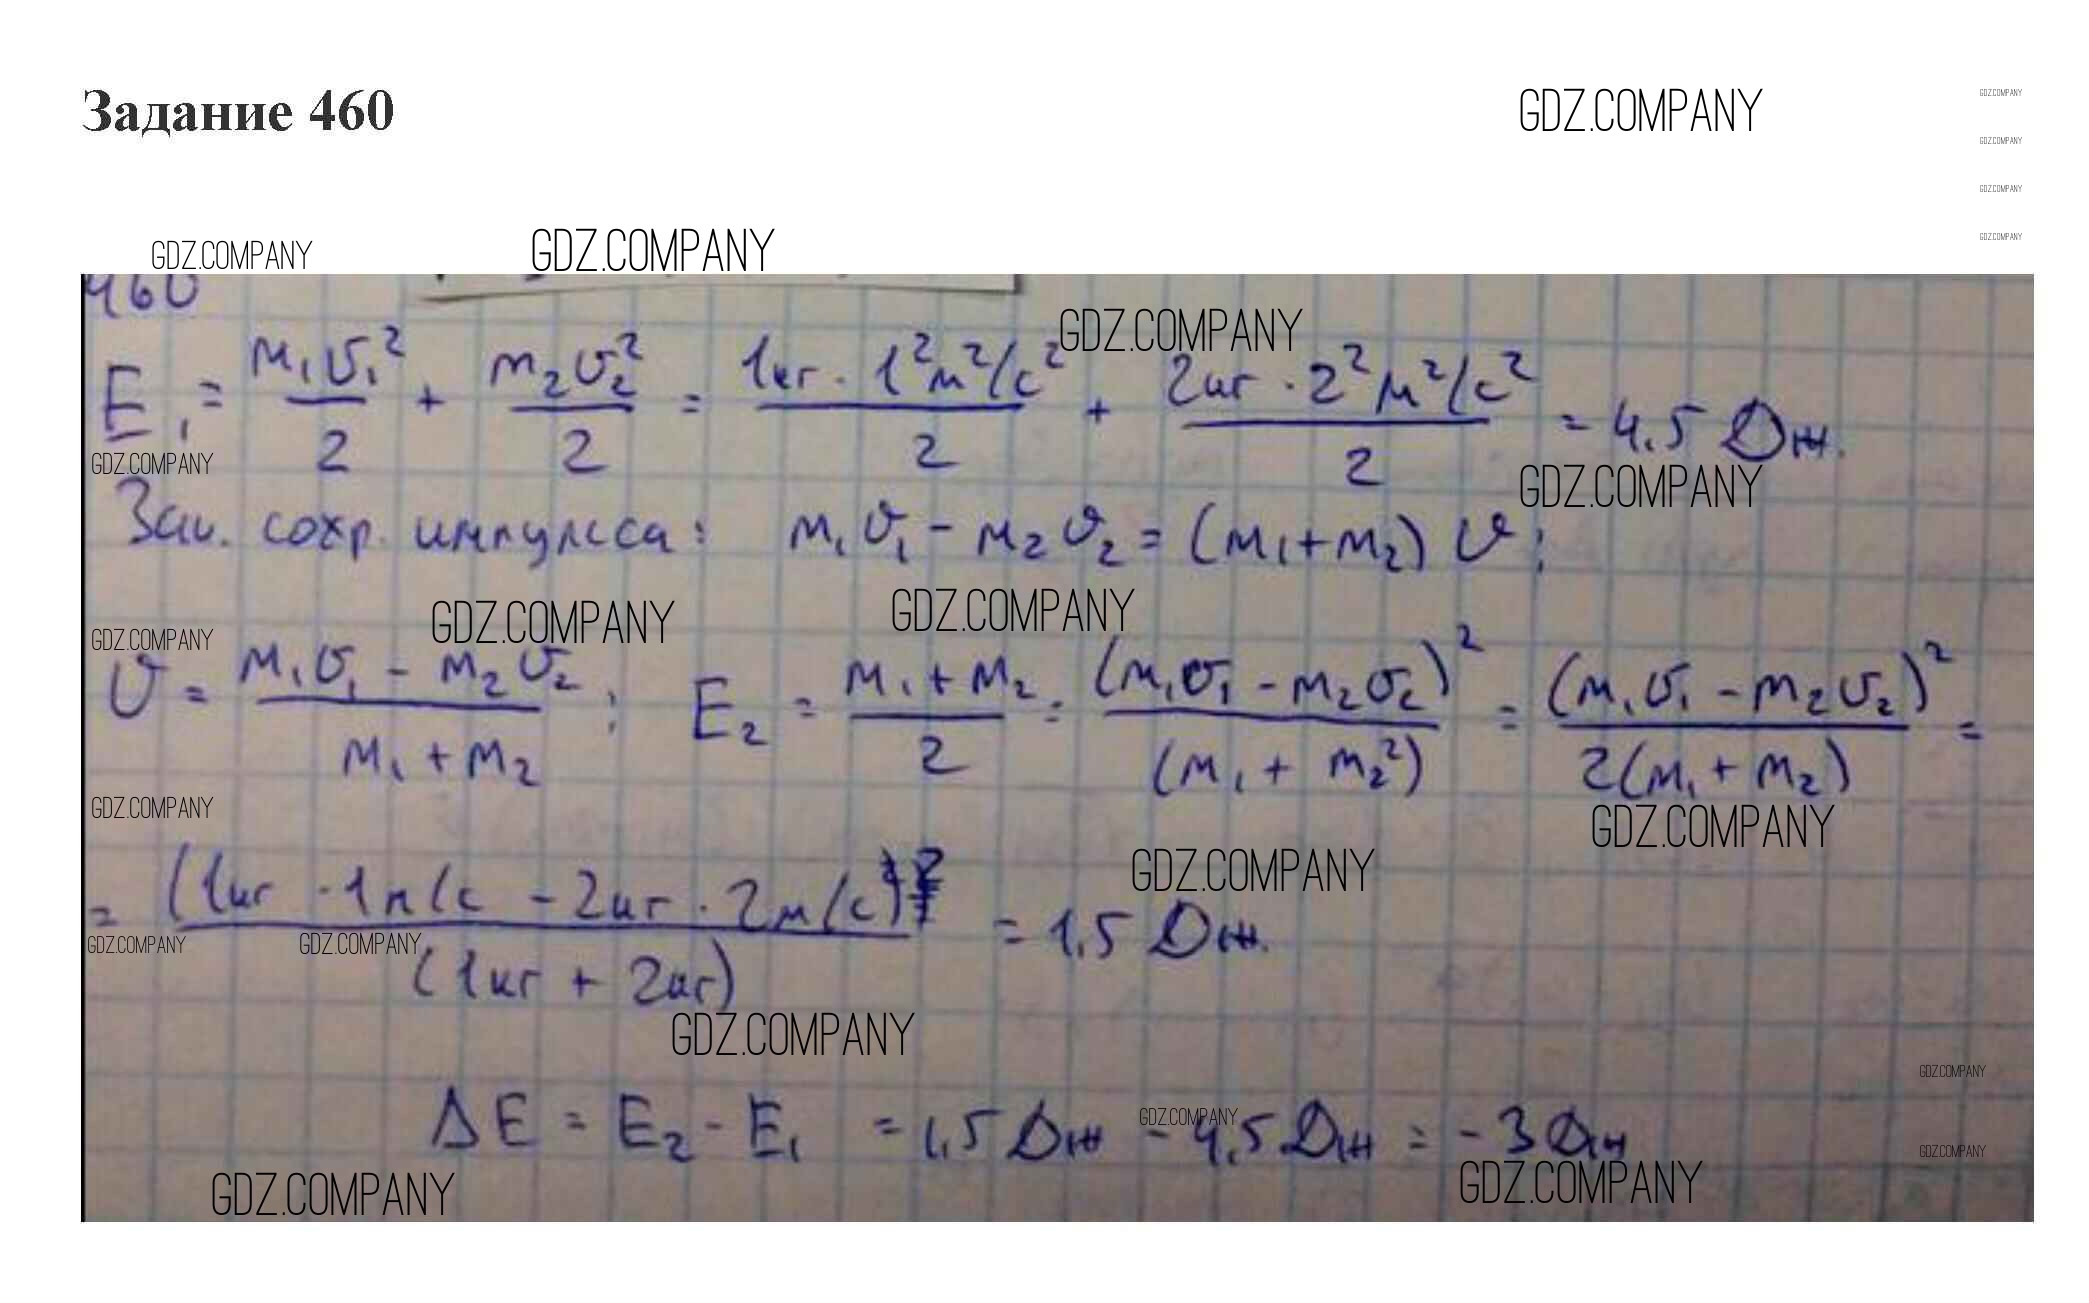 Задание 460
GDZ.COMPANY
GDZ.COMPANY
GDZ.COMPANY
GDZ.COMPANY
GDZ.COMPANY
GDZ.COMPANY GDZ.COMPANY
460
GDZ.COMPANY
E₁ = m₁υ₁²/2 + m₂υ₂²/2 = 1кг · 1²м²/с²/2 + 2кг · 2²м²/с²/2 = 4,5 Дж.
GDZ.COMPANY GDZ.COMPANY
Зак. сохр. импулсса: m₁υ₁ - m₂υ₂ = (m₁+m₂) υ;
GDZ.COMPANY GDZ.COMPANY GDZ.COMPANY
υ = m₁υ₁ - m₂υ₂/m₁ + m₂; E₂ = m₁ + m₂/2 = (m₁υ₁ - m₂υ₂)²/(m₁ + m₂²) = (m₁υ₁ - m₂υ₂)²/2(m₁ + m₂) =
GDZ.COMPANY GDZ.COMPANY
GDZ.COMPANY
= (1кг · 1м/с - 2кг · 2м/с)²/(1кг + 2кг) = 1,5 Дж.
GDZ.COMPANY GDZ.COMPANY
GDZ.COMPANY
GDZ.COMPANY
ΔE = E₂ - E₁ = 1,5 Дж - 4,5 Дж = -3 Дж
GDZ.COMPANY
GDZ.COMPANY
GDZ.COMPANY GDZ.COMPANY